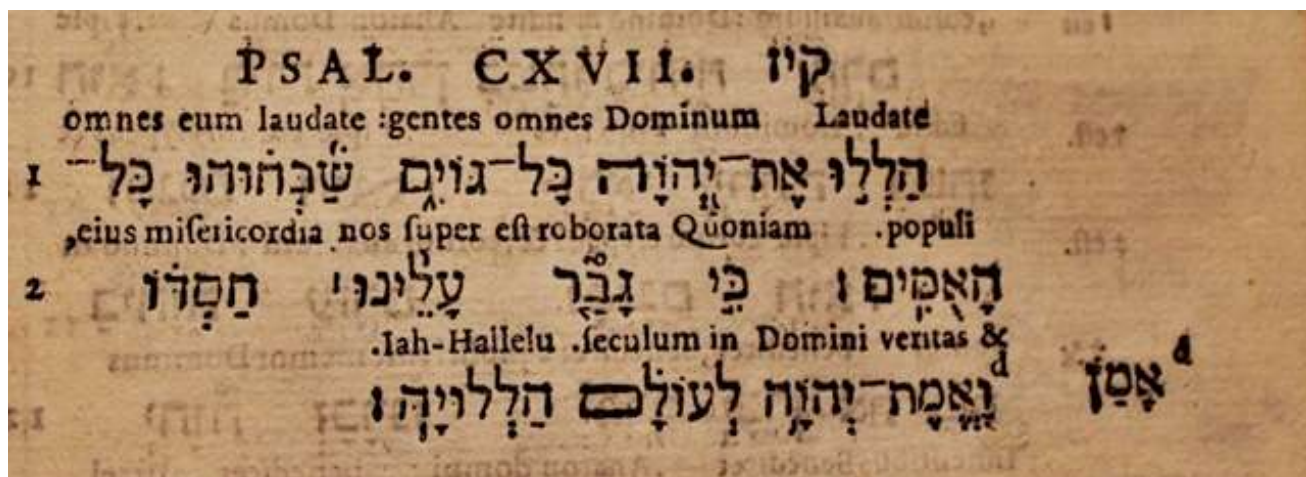 PSAL. CXVII. קיז
omnes eum laudate :gentes omnes Dominum Laudate
1 הַלְלוּ אֶת־יְהוָה כָּל־גּוֹיִם שַׁבְּחוּהוּ כָּל־
,eius miſericordia nos ſuper eſt roborata Quoniam .populi
2 הָאֻמִּים׃ כִּי גָבַר עָלֵינוּ׀ חַסְדּוֹ
.Iah-Hallelu .ſeculum in Domini veritas &
d וֶאֱמֶת־יְהוָה לְעוֹלָם הַלְלוּיָהּ׃
d אָמַן